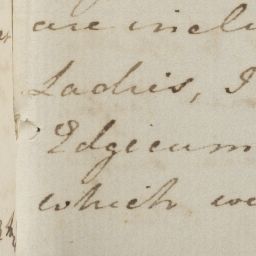 are inclu
Ladies, I
Edgecum
which we